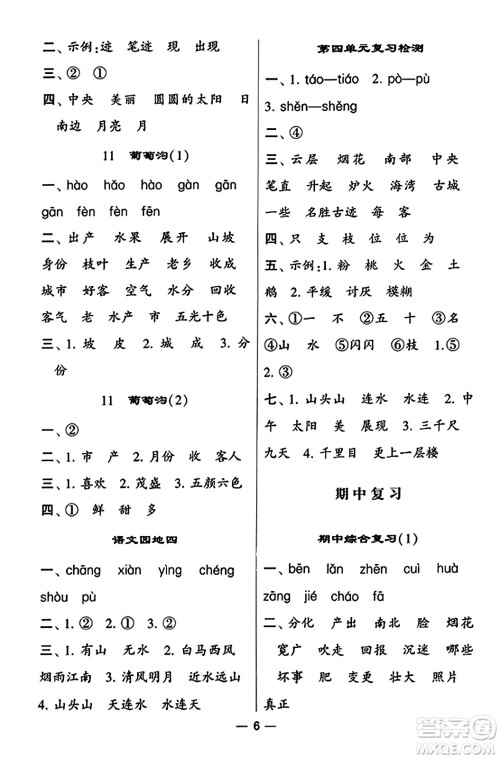 二、示例:迹　笔迹　现　出现
三、②　①
四、中央　美丽　圆圆的太阳　日
南边　月亮　月
11　葡萄沟(1)
一、hào　hǎo　hào　gàn　gān
gān　fèn　fèn　fēn
二、出产　水果　展开　山坡
身份　枝叶　生产　老乡　收成
城市　好客　空气　水分　回收
客气　老乡　水产　市　五光十色
三、1.坡　皮　2.成　城　3.分
份
11　葡萄沟(2)
一、②
二、1.市　产　2.月份　收　客人
三、1.喜欢　2.茂盛　3.五颜六色
四、①　鲜　甜　多
语文园地四
一、chāng　xiàn　yìng　chéng
shòu　pù
二、②　②　②　①　②　②
三、1.有山　无水　2.白马西风
烟雨江南　3.清风明月　近水远山
4.山头山　天连水　水连天
第四单元复习检测
一、1.táo—tiáo　2.pò—pù
3.shěn—shěng
二、④
三、云层　烟花　南部　中央
笔直　升起　炉火　海湾　古城
一些　名胜古迹　每　客
四、只　支　枝　位　位　为
五、示例:1.粉　桃　火　金　土
鹅　2.平缓　讨厌　模糊
六、①一　不　②五　③名
④山　水　⑤闪闪　⑥—⑤
2.③
七、1.山头山　连水　水连　2.中
午　太阳　美　展现　3.三千尺
九天　4.千里目　更上一层楼
期中复习
期中综合复习(1)
一、bēn　lǎn　zhēn　cí　zhēn
zāng　jié　cháo　fā
二、分化　产出　南北　脸　烟花
宽广　吹走　回报　沉迷　哪些
坏事　肥　更　壮大　照片
真正
— 6 —